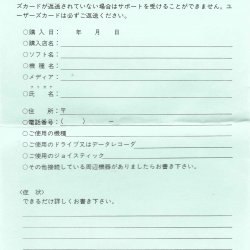 ズカードが返送されていない場合はサポートを受けることができません。ユ
ーザーズカードは必ずご返送ください。
○購 入 日： 年 月 日
○購入店名：
○ソフト名：
○機 種 名：
○メディア：
○氏 名：
○住 所：〒
○電話番号：( ) －
○ご使用の機種
○ご使用のドライブ又はデータレコーダ
○ご使用のジョイスティック
○その他接続している周辺機器がありましたらお書き下さい。
〈症 状〉
できるだけ詳しくお書き下さい。